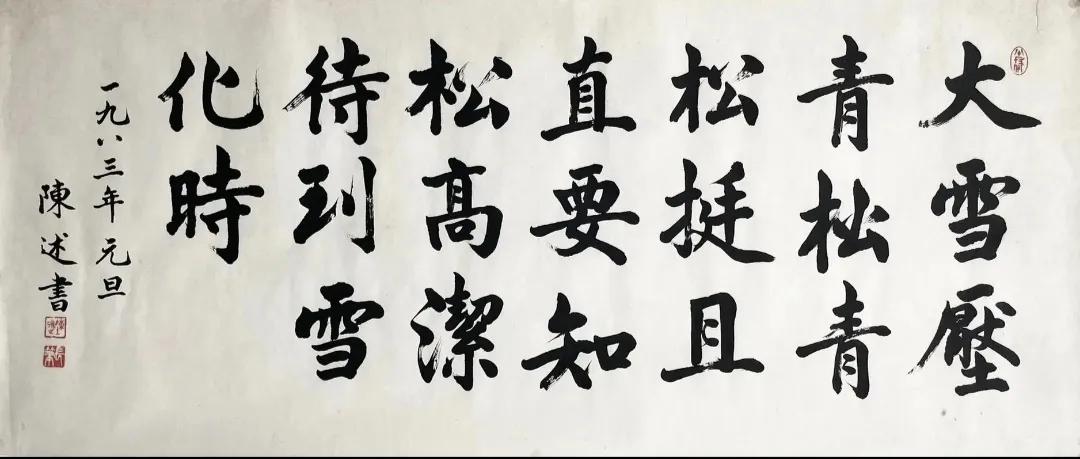 大雪壓
青松青
松挺且
直要知
松高潔
待到雪
化時
一九八三年元旦
陳述書